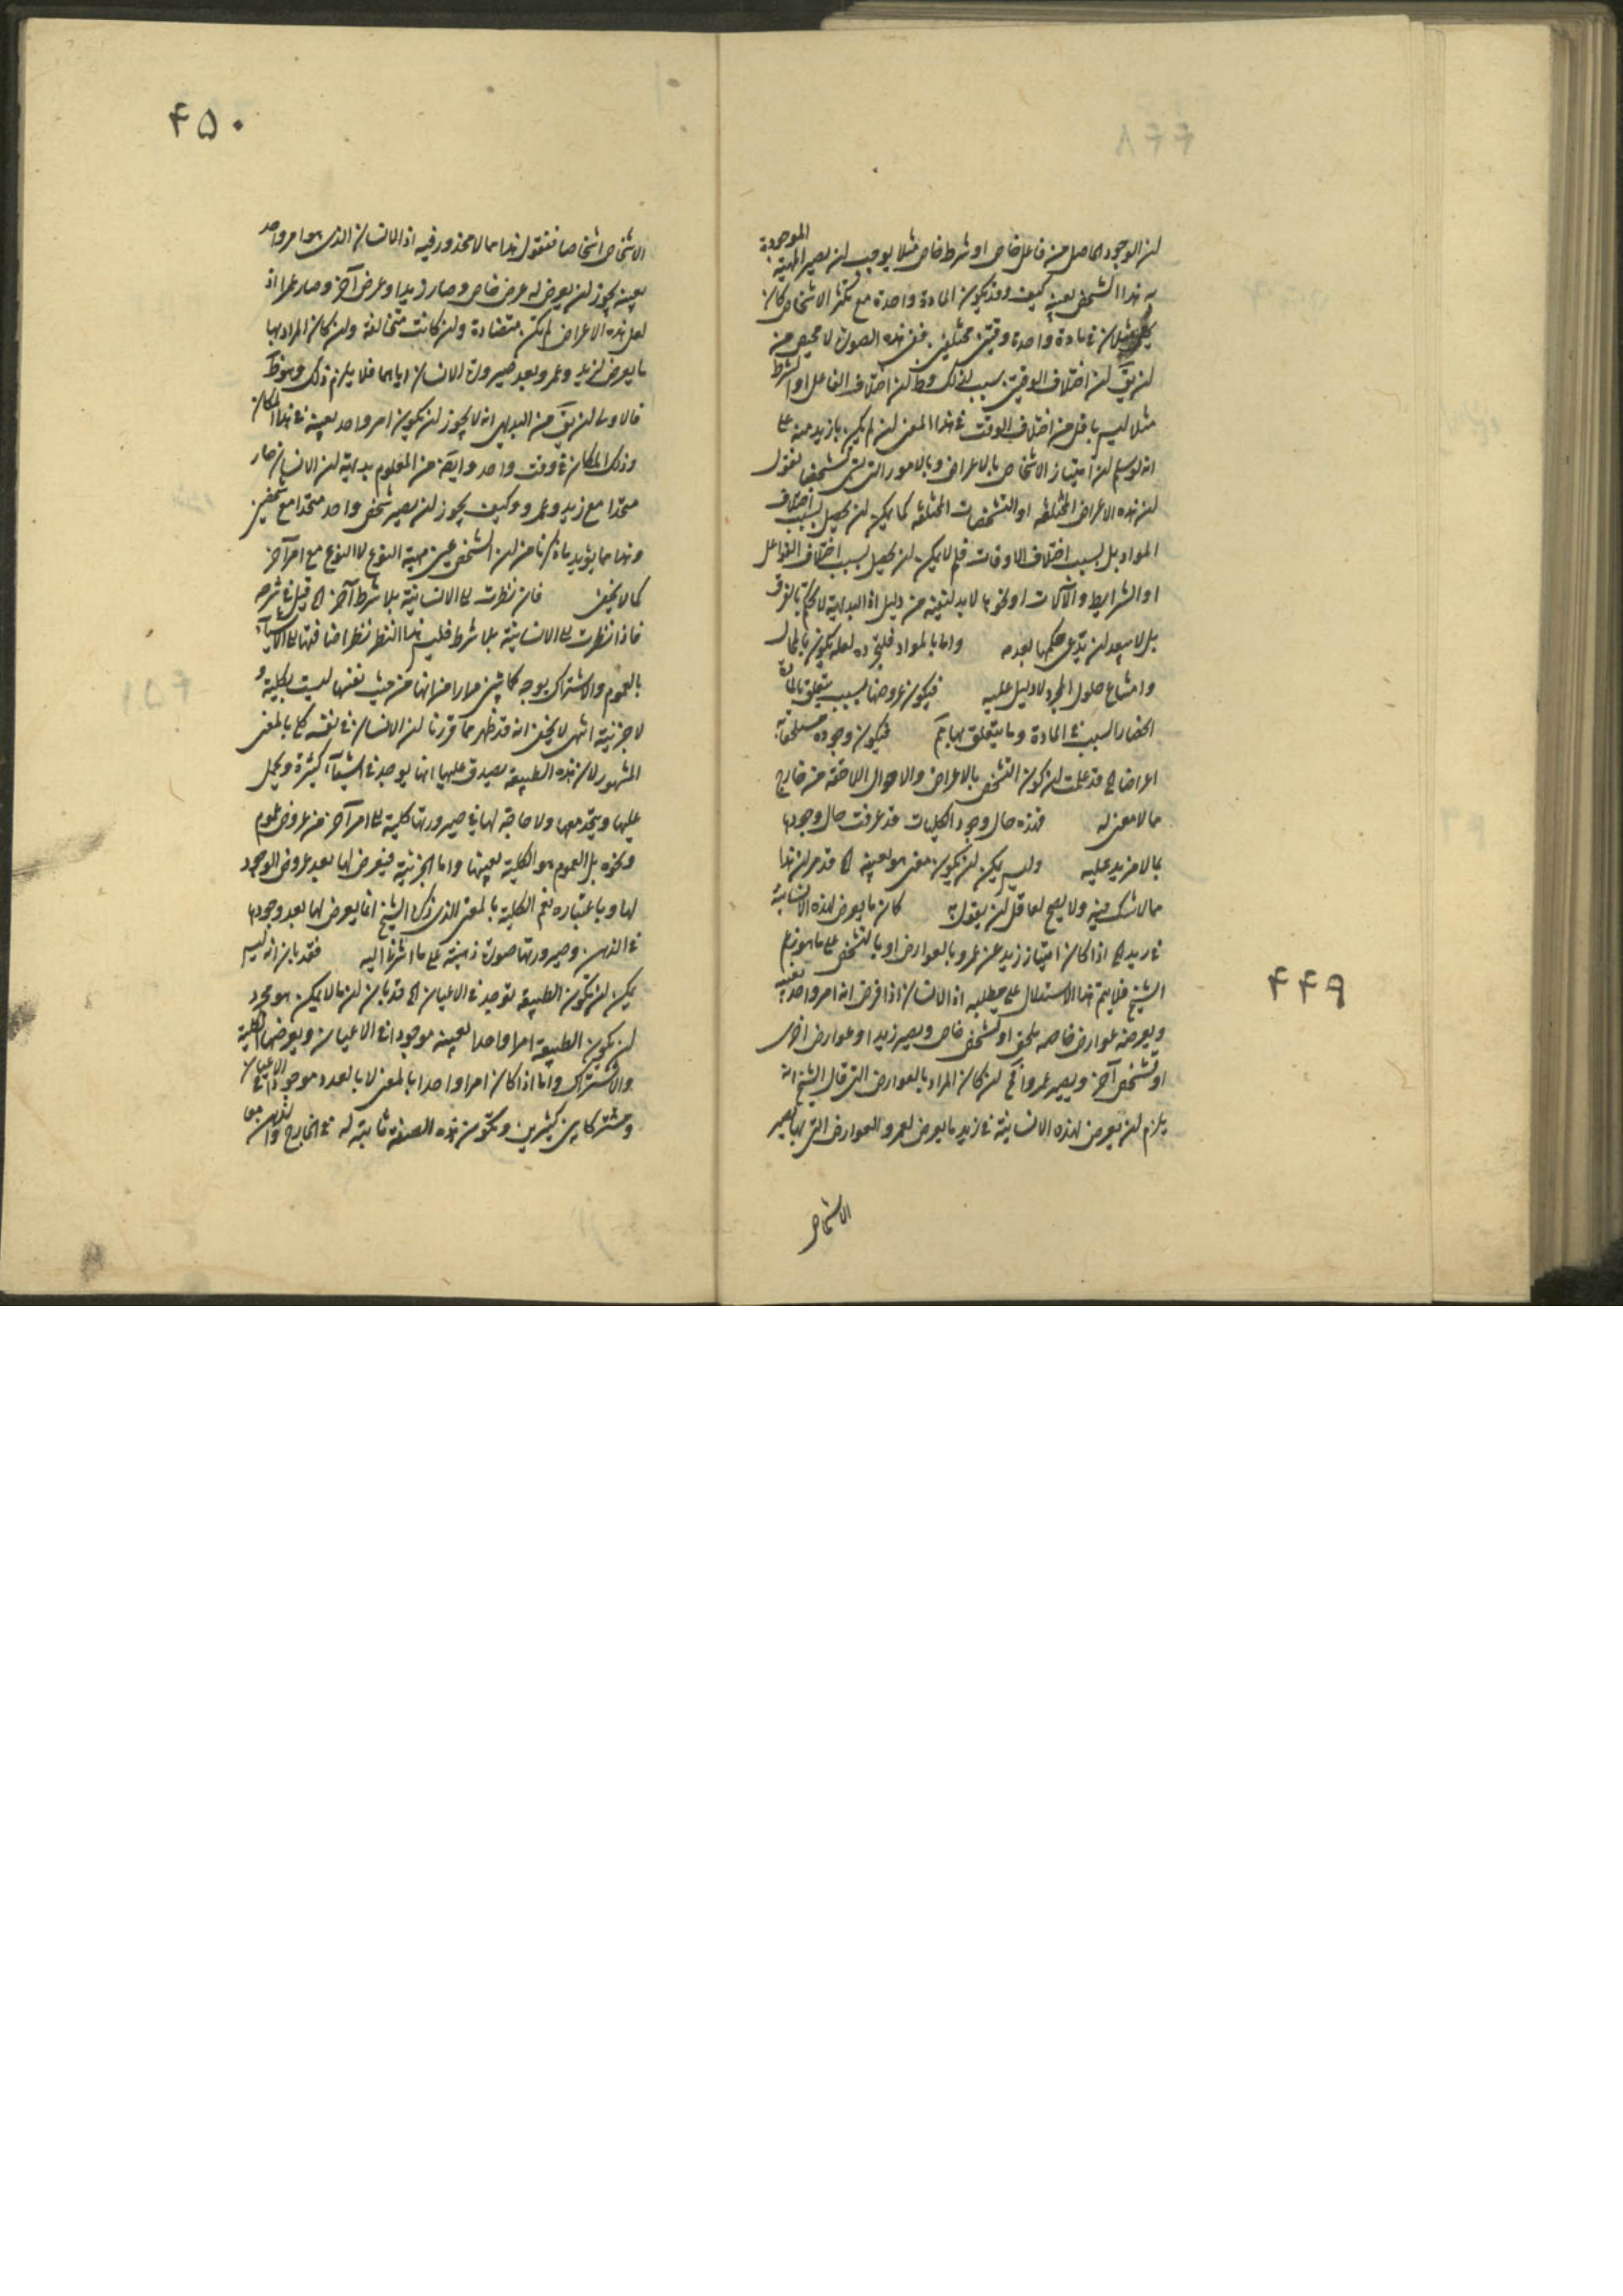 ۴۴۹
لان الوجود الحاصل من فاعل خاص او شرط خاص مثلا يوجب لان يصير المهية الموجودة
به هذا الشخص بعينه كيف وقد يكون المادة واحدة مع تكثر الاشخاص كان
في مادة واحدة وقتين مختلفين ففي هذه الصورة لا محيص من
ان يق ان اختلاف الوقتين سبب لذلك وظ ان اختلاف الفاعل او الشرط
مثلا ليس باقل من اختلاف الوقت في هذا المعنى ان لم يكن بازيد منه على
انه لو سلم ان امتياز الاشخاص بالاعراض وبالامور التي شخصا نقول
ان هذه الاعراض المختلفة او التشخصات المختلفة كما يمكن ان يحصل بسبب اختلاف
المواد بل بسبب اختلاف الاوقات فلم لا يمكن ان يحصل بسبب اختلاف الفواعل
او الشرايط والآلات او نحوها لا بد لنفيه من دليل اذ البداهة لا تحكم بالفرق
بل لا يبعد ان يدعى حكمها بعدمه واما بالمواد فلتجرده لعله يكون بالمحال
وامتناع حلول المجرد لا دليل عليه فيكون عروضها بسبب يتعلق بالمادة
انحصار السبب في المادة وما يتعلق بها بم فيكون وجوده مستلحقا به
اعراضا الخ قد علمت ان كون التشخص بالاعراض والاحوال اللاحقة من خارج
مما لا معنى له فهذه حال وجود الكليات قد عرفت حال وجودها
بما لا مزيد عليه وليس يمكن ان يكون معنى هو بعينه الخ قد مر ان هذا
مما لا شك فيه ولا يصح لعاقل ان يقول به كان ما يعرض لهذه الانسانية
في زيد الخ اذا كان امتياز زيد عن عمرو بالعوارض او بالتشخص على ما هو زعم
الشيخ فلا يتم هذا الاستدلال على مطلبه اذ الانسان اذا فرض انه امر واحد بعينه
ويعرضه عوارض خاصه ملحق او تشخص خاص ويصير زيدا وعوارض اخرى
او تشخص آخر ويصير عمروا فح ان كان المراد بالعوارض التي قال الشيخ انه
يلزم ان يعرض لهذه الانسانية في زيد ما يعرض لعمرو العوارض التي بها يصير
الاشخاص
۴۵۰
الاشخاص اشخاصا فنقول هذا مما لا محذور فيه اذ الانسان الذي هو امر واحد
بعينه يجوز ان يعرض له عرض خاص وصار زيدا وعرض آخر وصار عمرا اذ
لعل هذه الاعراض لم تكن متضادة وان كانت متخالفة وان كان المراد بها
ما يعرض لزيد وعمرو بعد صيرورة الانسان اياهما فلا يلزم ذلك وهو ظ
فالاولى ان يق من البديهي انه لا يجوز ان يكون امر واحد بعينه في هذا المكان
وذلك المكان في وقت واحد وايضا من المعلوم بديهة ان الانسان صار
متحدا مع زيد وعمرو وكيف يجوز ان يصير شخص واحد متحدا مع شخصين
وهذا مما يؤيد ما ذكرنا من ان الشخص عين مهية النوع لا النوع مع امر آخر
كما لا يخفى فان نظرت الى الانسانية بلا شرط آخر الخ قيل في شرحه
فاذا نظرت الى الانسانية بلا شرط فليس هذا النظر نظر اضافتها الى الاشياء
بالعموم والاشتراك بوجه كما بين مرارا من انها من حيث نفسها ليست بكلية و
لا جزئية انتهى لا يخفى انه قد ظهر مما قررنا ان الانسان في نفسه كلي بالمعنى
المشهور لان هذه الطبيعة يصدق عليها انها يوجد في اشياء كثيرة ويحمل
عليها ويتحد معها ولا حاجة لها في صيرورتها كلية الى امر آخر من عروض عموم
ونحوه بل العموم هو الكلية بعينها واما الجزئية فيعرض لها بعد عروض الوجود
لها وباعتباره نعم الكلية بالمعنى الذي ذكره الشيخ انما يعرض لها بعد وجودها
في الذهن وصيرورتها صورة ذهنية على ما اشرنا اليه فقد بان انه ليس
يمكن ان يكون الطبيعة توجد في الاعيان الخ قد بان ان ما لا يمكن هو مجرد
ان يكون الطبيعة امرا واحدا بعينه موجودا في الاعيان ويعرضها الكلية
والاشتراك واما اذا كان امرا واحدا بالمعنى لا بالعدد موجودا في الاعيان
ومشتركا بين كثيرين ويكون هذه الصفة ثابتة له في الخارج والذهن معا